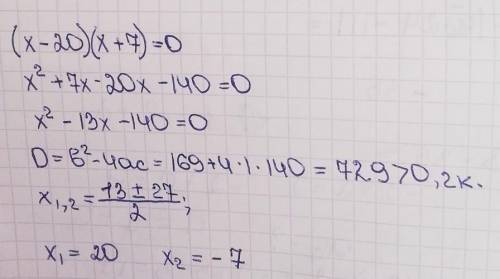 (x-20)(x+7)=0
x²+7x-20x-140=0
x²-13x-140=0
D=b²-4ac=169+4·1·140=729>0, 2к.
x₁,₂=(13±27)/2;
x₁=20 x₂=-7